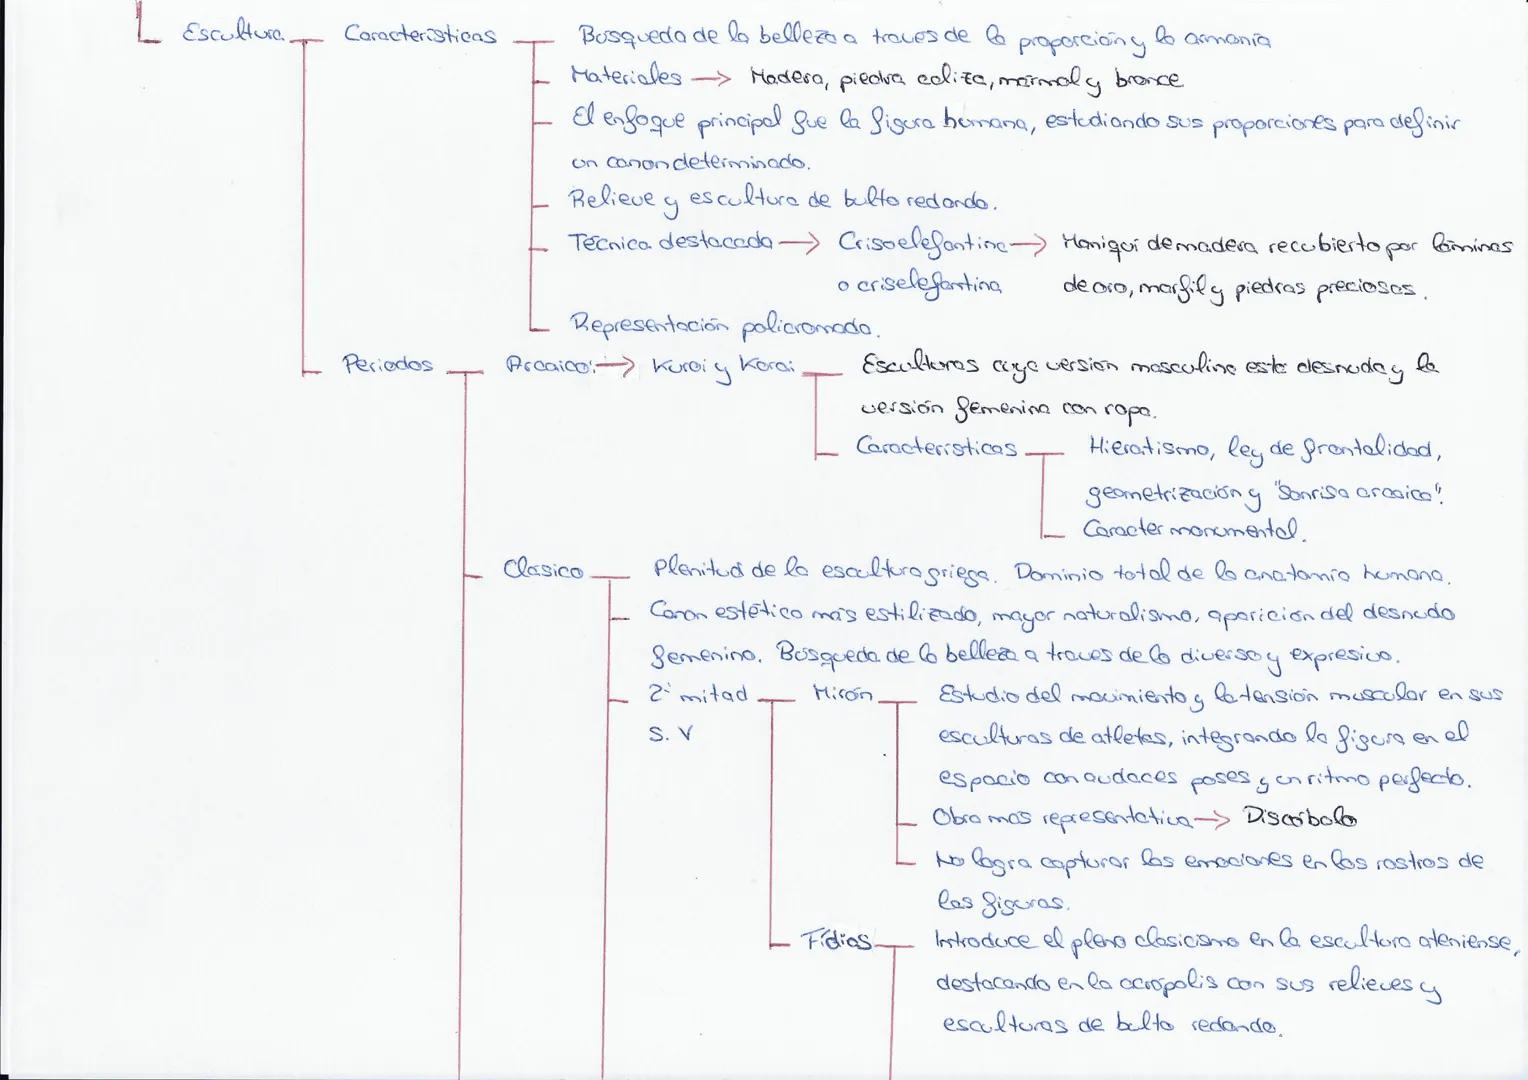 Escultura Caracteristicas Busqueda de la belleza a traves de la proporción y la armonía
Materiales → Madera, piedra caliza, mármol y bronce
El enfoque principal fue la figura humana, estudiando sus proporciones para definir
un canon determinado.
Relieve y escultura de bulto redondo.
Técnica destacada → Crisoelefantina → Maniquí de madera recubierto por láminas
o criselefantina de oro, marfil y piedras preciosas.
Representación policromada.
Periodos Arcaico: → Kuroi y Korai Esculturas cuya version masculina esta desnuda y la
versión femenina con ropa.
Caracteristicas Hieratismo, ley de frontalidad,
geometrización y "Sonrisa arcaica".
Caracter monumental.
Clasico Plenitud de la escultura griega. Dominio total de la anatomía humana.
Canon estético más estilizado, mayor naturalismo, aparición del desnudo
femenino. Búsqueda de la belleza a traves de lo diverso y expresivo.
2ª mitad Mirón Estudio del movimiento y la tensión muscular en sus
S. V esculturas de atletas, integrando la figura en el
espacio con audaces poses y un ritmo perfecto.
Obra mas representativa → Discóbolo
No logra capturar las emociones en los rostros de
las figuras.
Fídias Introduce el pleno clasicismo en la escultura ateniense,
destacando en la acrópolis con sus relieves y
esculturas de bulto redondo.